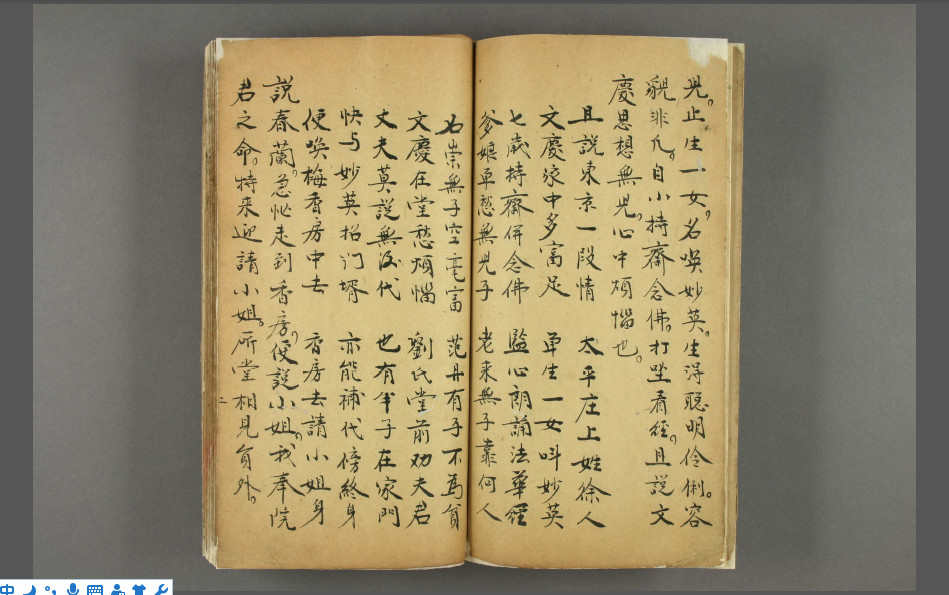 児。止生一女。名唤妙英。生淂聦明伶俐。容
貌非凢。自小持齋念佛。打坐看経。且說文
慶思想無児。心中煩惱也。
且說東京一段情　太平庄上姓徐人
文慶家中多富足　单生一女呌妙英
七歲持齋併念佛　監心朗誦法華經
爹娘单愁無児子　老来無子靠何人
石崇無子空毫富　范丹有子不為貧
文慶在堂愁煩惱　劉氏堂前劝夫君
丈夫莫說無後代　也有半子在家門
快与妙英招门壻　亦能補代傍終身
便唤梅香房中去　香房去請小姐身
說春蘭。急忙走到香房。便說小姐。我奉院
君之命。特来迎請小姐。所堂相見貟外。
二
中